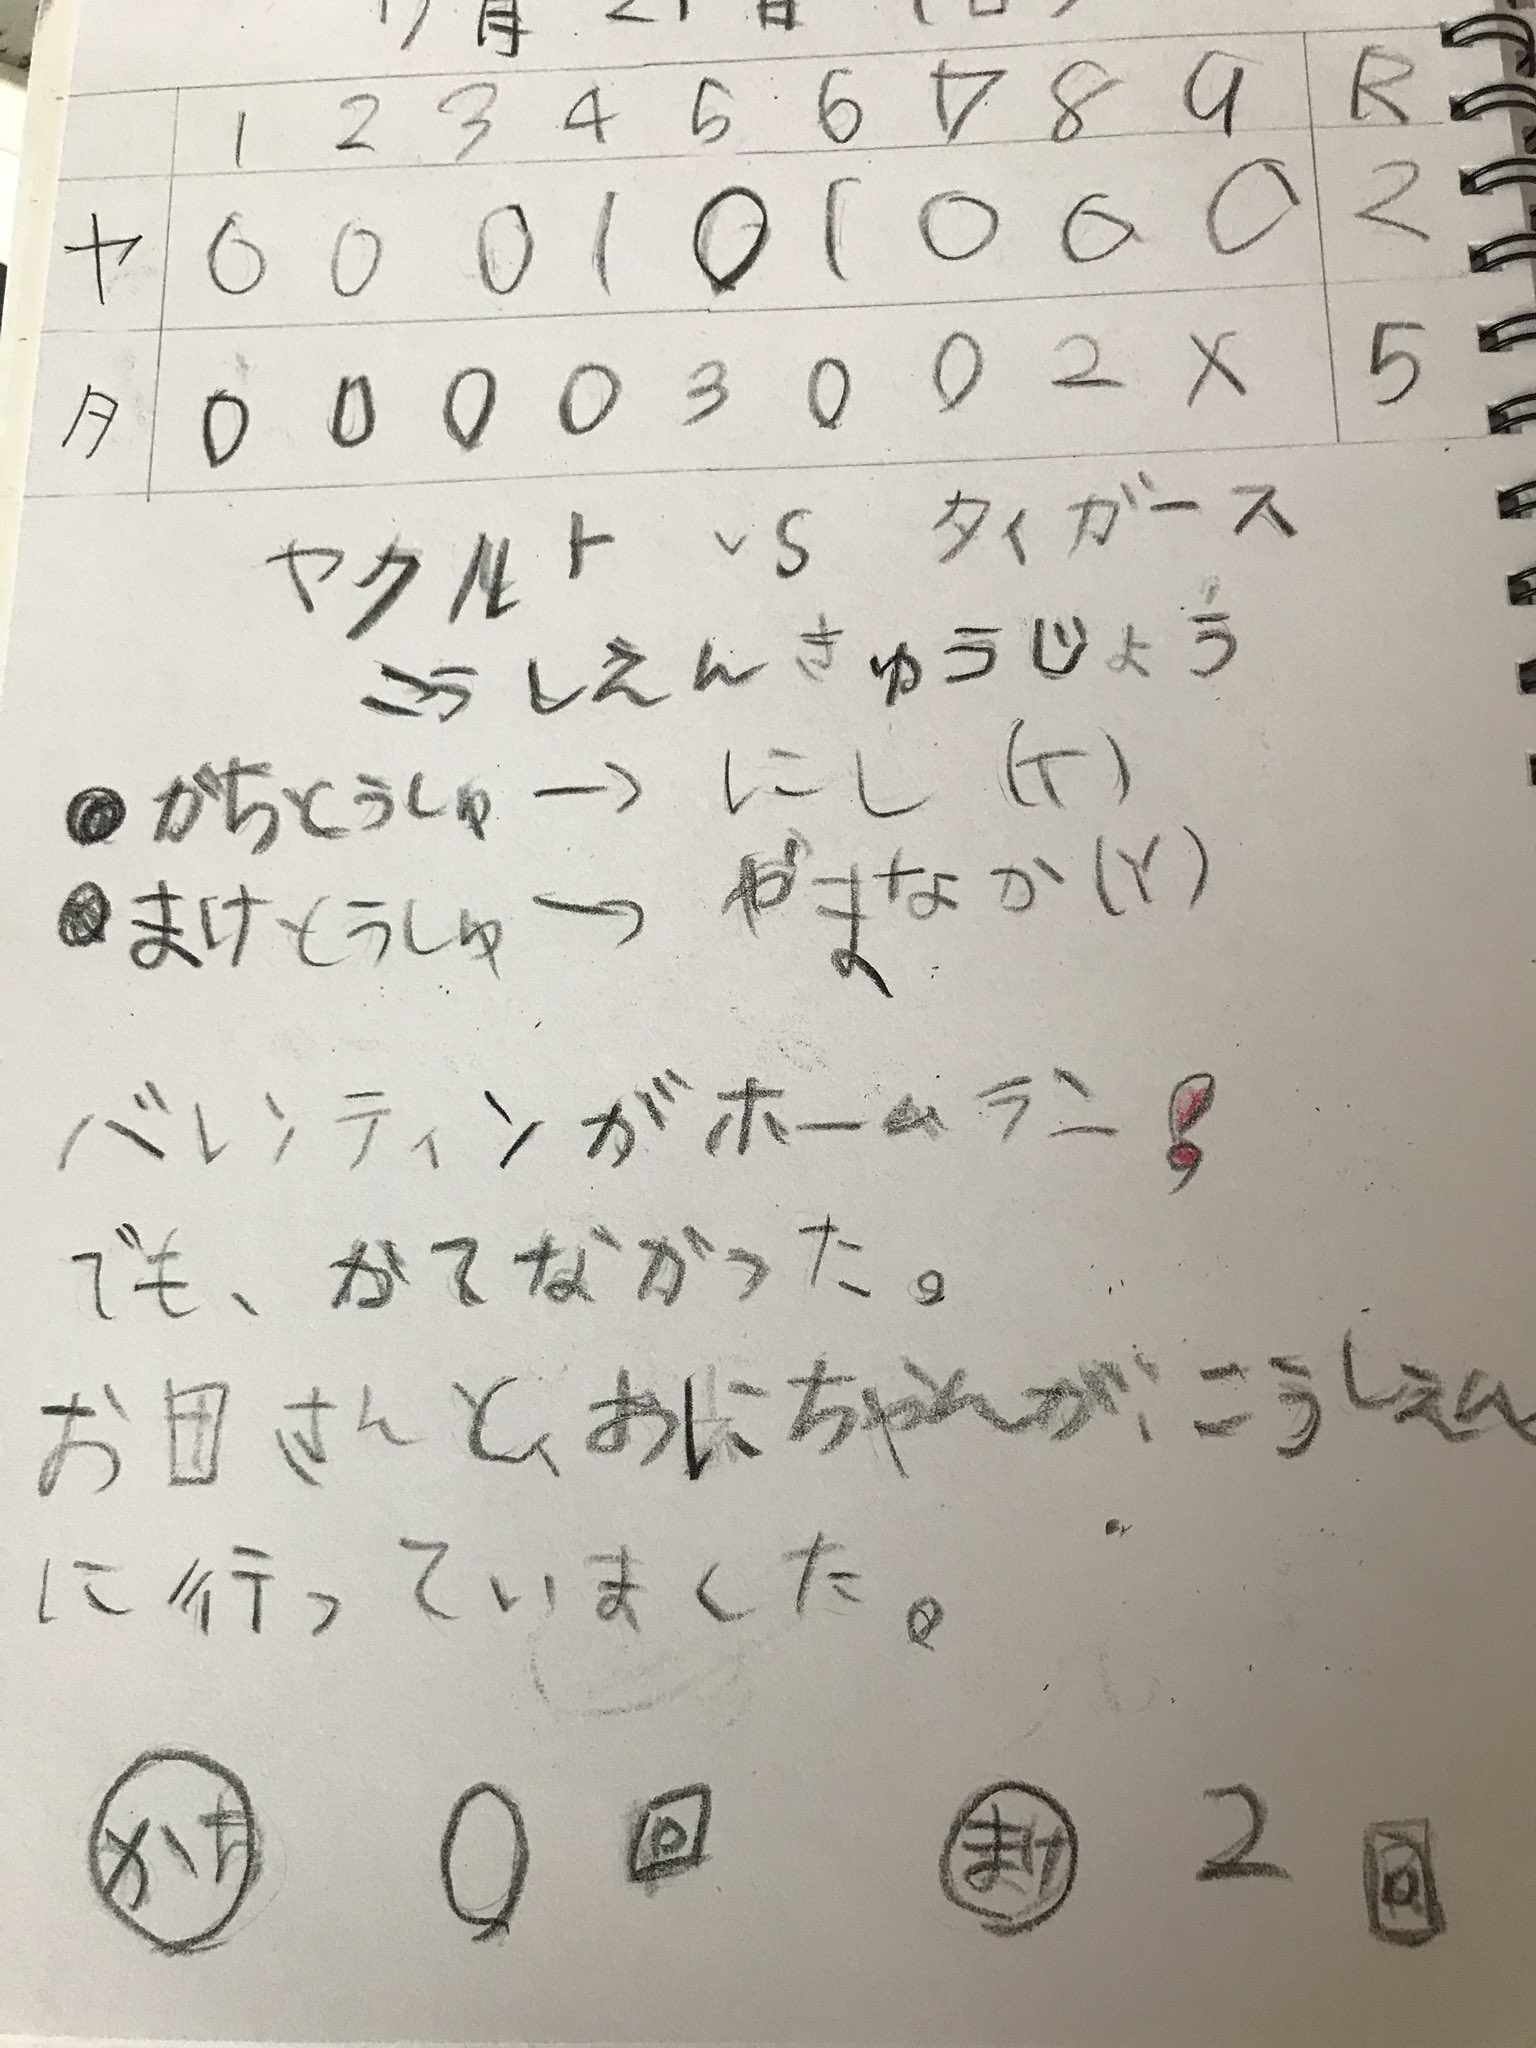 7月21日(日)
1 2 3 4 5 6 7 8 9 R
ヤ 0 0 0 1 0 1 0 0 0 2
タ 0 0 0 0 3 0 0 2 X 5
ヤクルト vs タイガース
こうしえんきゅうじょう
●がちとうしゅ→ にし (T)
●まけとうしゅ→ やまなか(Y)
バレンティンがホームラン!
でも、かてなかった。
お母さんと、おにちゃんが、こうしえん
に行っていました。
かち 0 回 まけ 2 回